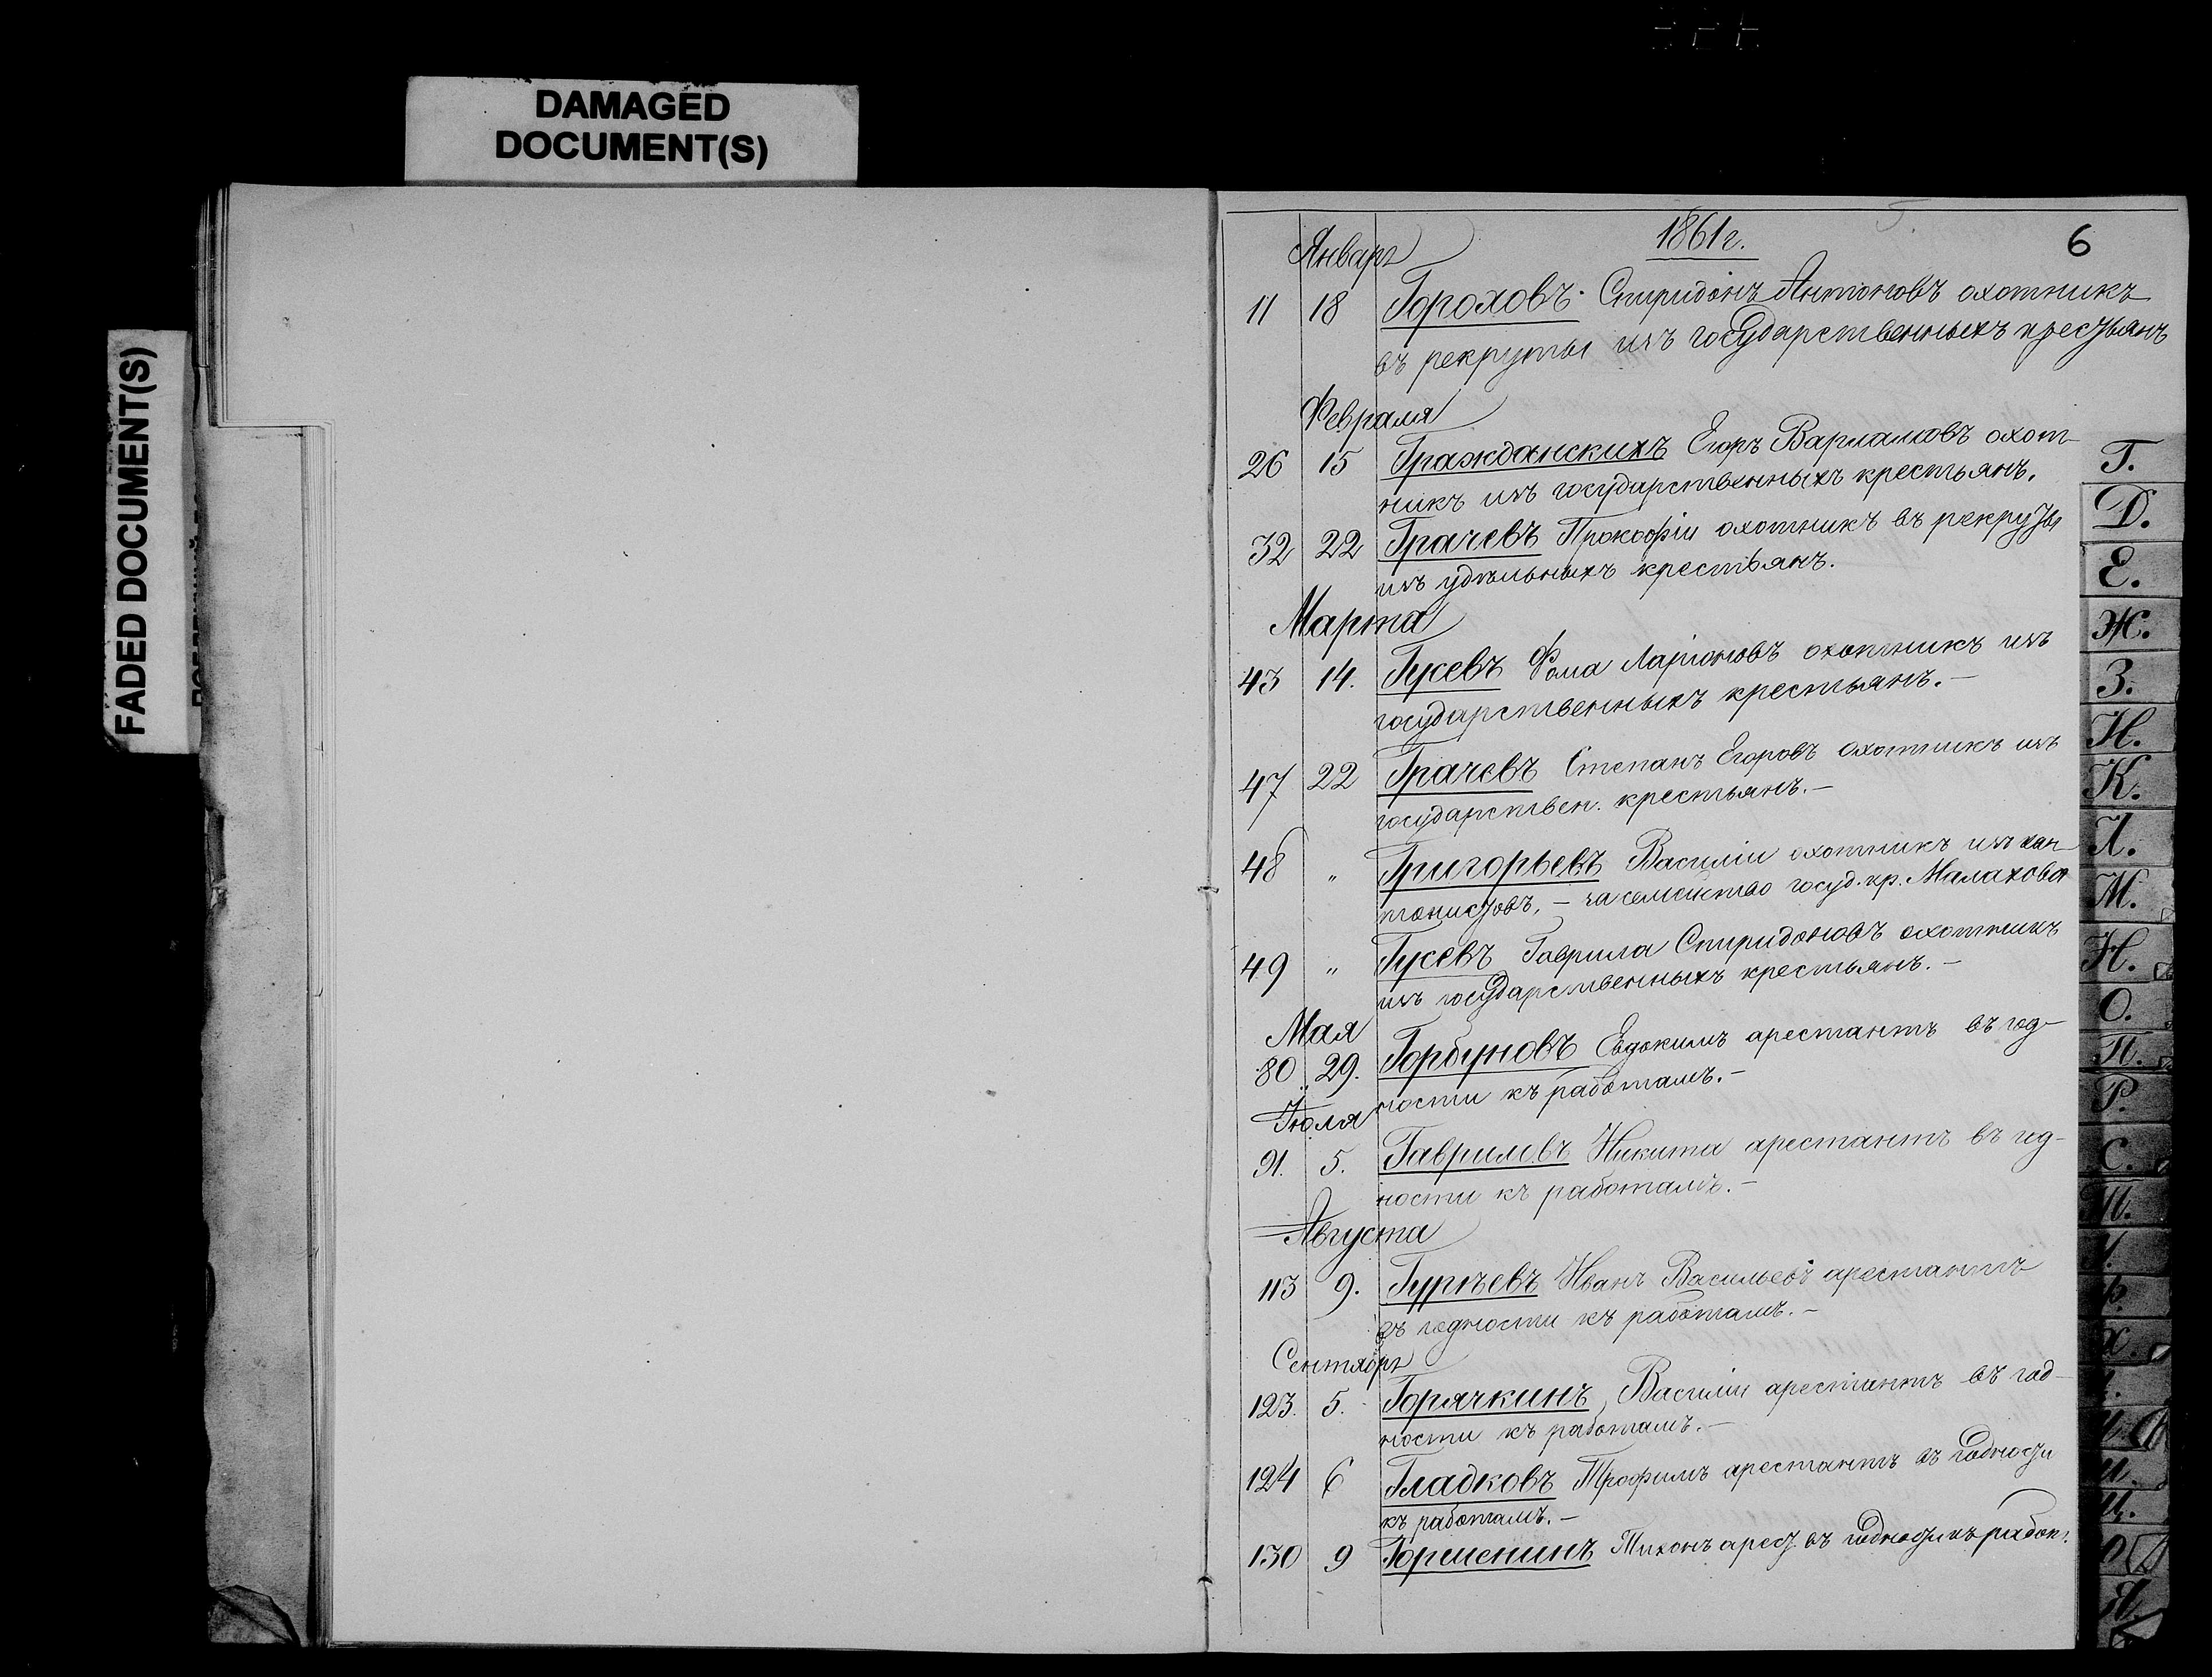 DAMAGED
DOCUMENT(S)
FADED DOCUMENT(S)
1861 г.
6
Январь
11 18 Гороховъ Спиридонъ Антоновъ охотникъ
въ рекруты изъ государственныхъ крестьянъ
Февраля
26 15 Гражданскихъ Егоръ Варламовъ охот-
никъ изъ государственныхъ крестьянъ.
32 22 Грачевъ Прокофiи охотникъ въ рекруты
изъ удѣльныхъ крестьянъ.
Марта
43 14. Гусевъ Фома Ларiоновъ охотникъ изъ
государственныхъ крестьянъ.-
47 22 Грачевъ Степанъ Егоровъ охотникъ изъ
государствен. крестьянъ.-
48 „ Григорьевъ Василiи охотникъ изъ кан-
тонистовъ. - за семейство госуд. кр. Малахова
49 „ Гусевъ Гаврила Спиридоновъ охотникъ
изъ государственныхъ крестьянъ.-
Мая
80 29. Горбуновъ Евдокимъ арестантъ въ год-
ности къ работамъ.-
Iюля
91. 5. Гавриловъ Никита арестантъ въ год-
ности къ работамъ.-
Августа
113 9. Гурьевъ Иванъ Васильевъ арестантъ
въ годности къ работамъ.-
Сентябрь
123. 5. Горячкинъ Василiи арестантъ въ год-
ности къ работамъ.-
124 6 Гладковъ Трофимъ арестантъ въ годности
къ работамъ.-
130 9 Тихонъ арест. въ годности къ работ.
Г.
Д.
Е.
Ж.
З.
И.
К.
Л.
М.
Н.
О.
П.
Р.
С.
Т.
У.
Ф.
Х.